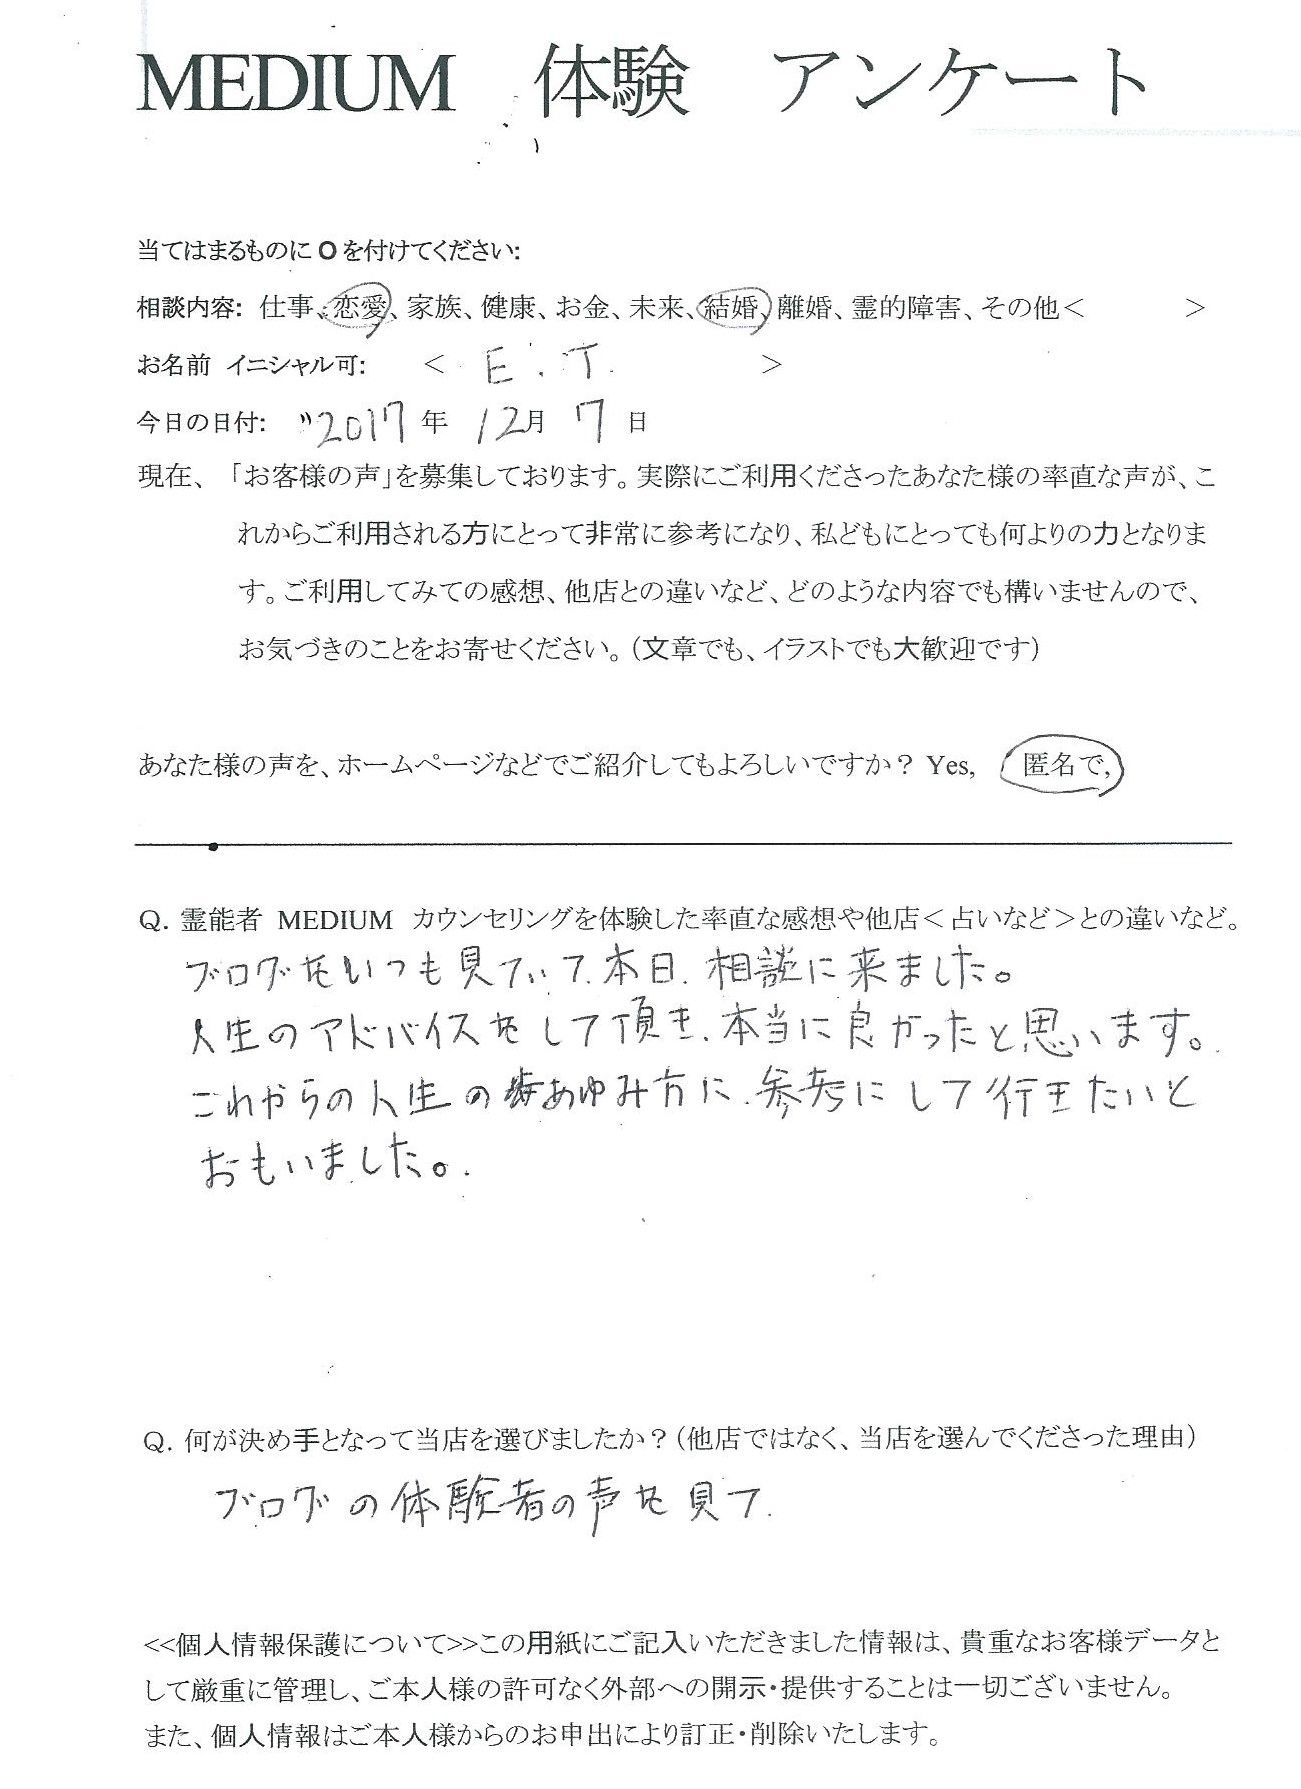 MEDIUM 体験 アンケート
当てはまるものに O を付けてください:
相談内容: 仕事、恋愛、家族、健康、お金、未来、結婚、離婚、霊的障害、その他< >
お名前 イニシャル可: < E.T. >
今日の日付: 2017年 12月 7日
現在、「お客様の声」を募集しております。実際にご利用くださったあなた様の率直な声が、こ
れからご利用される方にとって非常に参考になり、私どもにとっても何よりの力となりま
す。ご利用してみての感想、他店との違いなど、どのような内容でも構いませんので、
お気づきのことをお寄せください。(文章でも、イラストでも大歓迎です)
あなた様の声を、ホームページなどでご紹介してもよろしいですか? Yes, 匿名で,
Q. 霊能者 MEDIUM カウンセリングを体験した率直な感想や他店<占いなど>との違いなど。
ブログをいつも見ていて、本日、相談に来ました。
人生のアドバイスをして頂き、本当に良かったと思います。
これからの人生のあゆみ方に、参考にして行きたいと
おもいました。
Q. 何が決め手となって当店を選びましたか?(他店ではなく、当店を選んでくださった理由)
ブログの体験者の声を見て.
<<個人情報保護について>>この用紙にご記入いただきました情報は、貴重なお客様データと
して厳重に管理し、ご本人様の許可なく外部への開示・提供することは一切ございません。
また、個人情報はご本人様からのお申出により訂正・削除いたします。